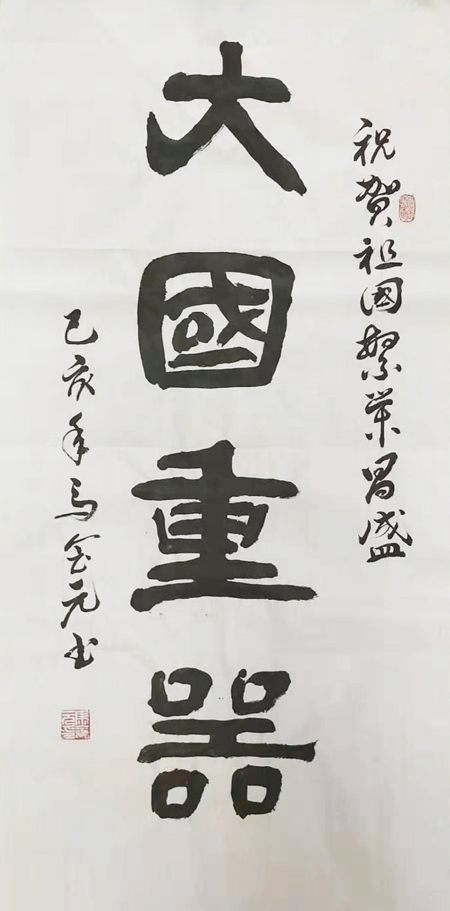 祝贺祖国繁荣昌盛
大國重器
己亥年马金元书